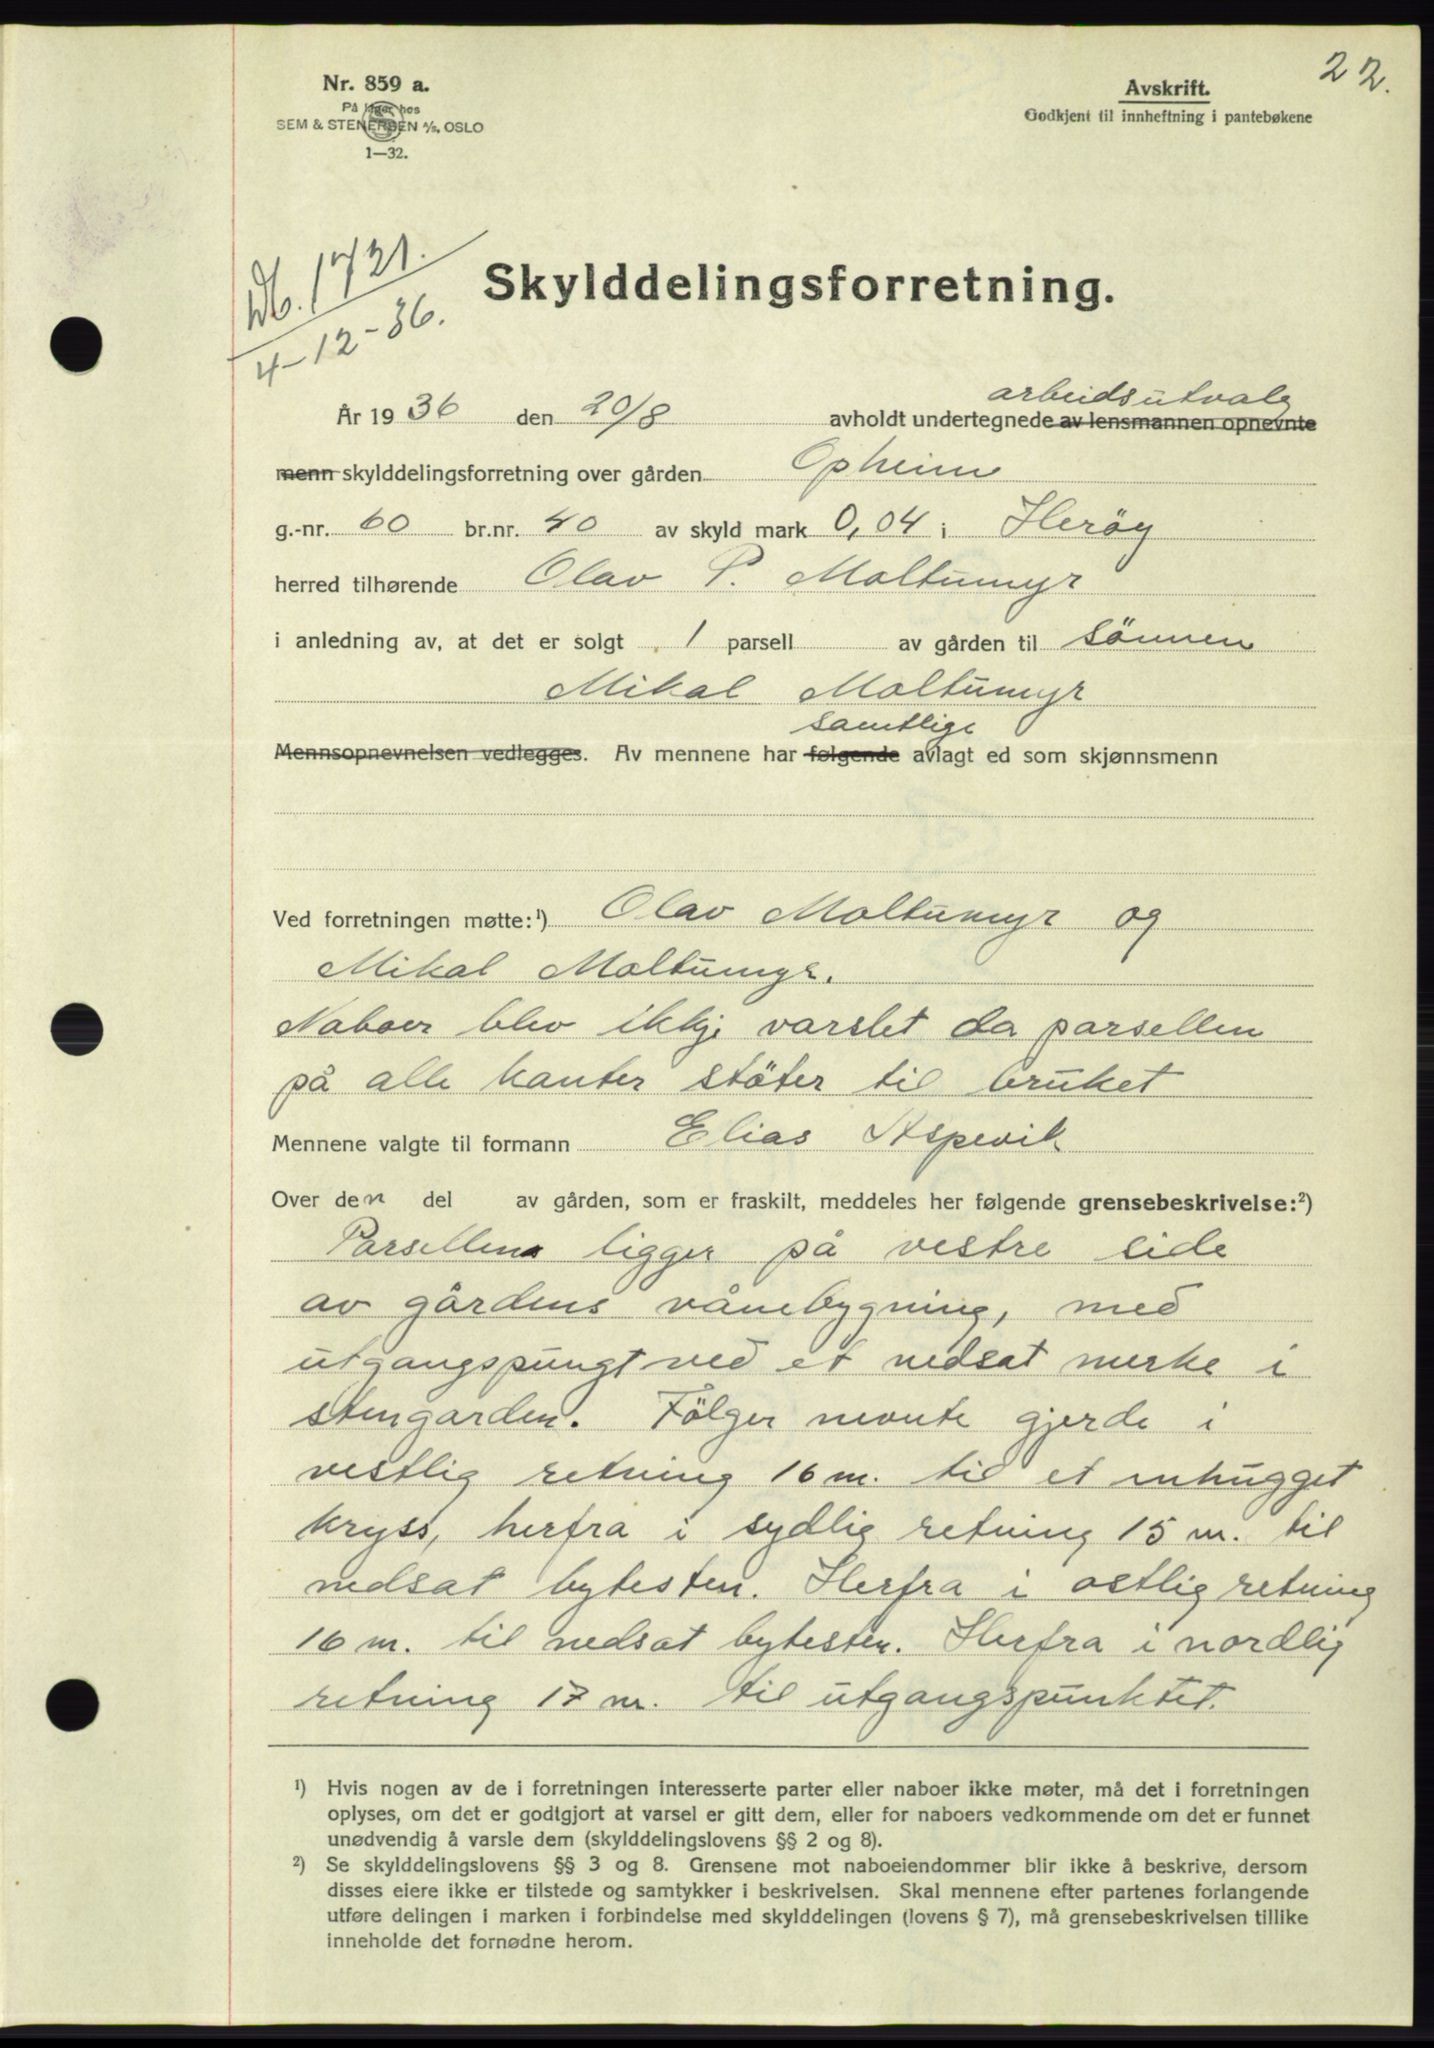 22.
Nr. 859 a.
På lager hos
SEM & STENERSEN A/S, OSLO
1—32.
Avskrift.
Godkjent til innheftning i pantebøkene
Db. 1721.
4-12-36.
Skylddelingsforretning.
arbeidsutvalg
År 1936 den 20/8 avholdt undertegnede av lensmannen opnevnte
menn skylddelingsforretning over gården Opheim
g.-nr. 60 br.nr. 40 av skyld mark 0,04 i Heröy
herred tilhørende Olav P. Moltumyr
i anledning av, at det er solgt 1 parsell av gården til sönnen
Mikal Moltumyr
samtlige
Mennsopnevnelsen vedlegges. Av mennene har følgende avlagt ed som skjønnsmenn
Ved forretningen møtte:¹) Olav Moltumyr og
Mikal Moltumyr.
Naboer blev ikkje varslet da parsellen
på alle kanter stöter til bruket
Mennene valgte til formann Elias Aspevik
Over den del av gården, som er fraskilt, meddeles her følgende grensebeskrivelse:²)
Parsellen ligger på vestre side
av gårdens vånebygning, med
utgangspungt ved et nedsat merke i
stengarden. Fölger nevnte gjerde i
vestlig retning 16 m. til et inhugget
kryss, herfra i sydlig retning 15 m. til
nedsat bytesten. Herfra i ostlig retning
16 m. til nedsat bytesten. Herfra i nordlig
retning 17 m. til utgangspunktet.
¹) Hvis nogen av de i forretningen interesserte parter eller naboer ikke møter, må det i forretningen
oplyses, om det er godtgjort at varsel er gitt dem, eller for naboers vedkommende om det er funnet
unødvendig å varsle dem (skylddelingslovens §§ 2 og 8).
²) Se skylddelingslovens §§ 3 og 8. Grensene mot naboeiendommer blir ikke å beskrive, dersom
disses eiere ikke er tilstede og samtykker i beskrivelsen. Skal mennene efter partenes forlangende
utføre delingen i marken i forbindelse med skylddelingen (lovens § 7), må grensebeskrivelsen tillike
inneholde det fornødne herom.